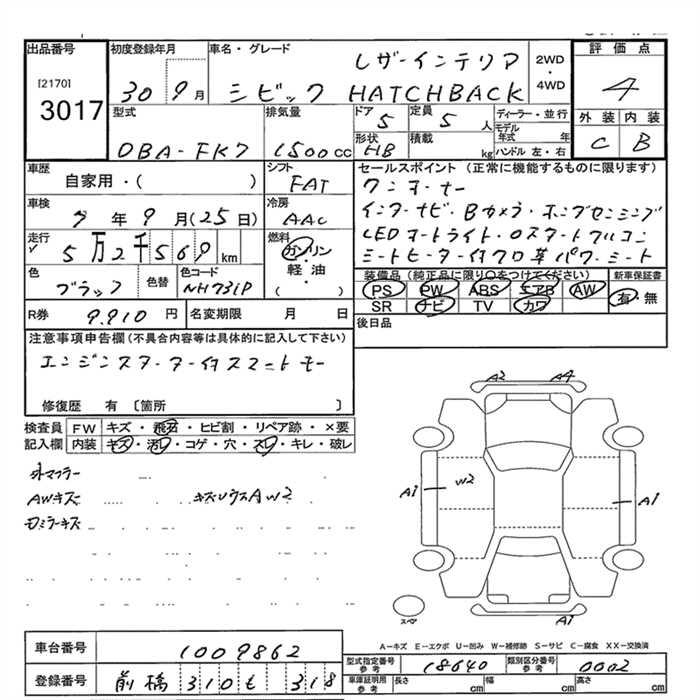 出品番号
[2170]
3017
初度登録年月
30 9月
車名・グレード
レザーインテリア
シビック HATCHBACK
2WD
・
4WD
評価点
4
外装 内装
C B
型式
DBA-FK7
排気量
1500cc
ドア
5
定員
5人
形状
HB
積載
kg
ディーラー・並行
モデル年式 年
ハンドル 左・右
車歴
自家用・( )
シフト
FAT
車検
7年9月(25日)
冷房
AAC
走行
5万2千569km
燃料
ガソリン
・
軽油
・
( )
色
ブラック
色替
色コード
NH731P
R券
9,910円
名変期限 月 日
セールスポイント(正常に機能するものに限ります)
ワンオーナー
インターナビ・Bカメラ・ホンダセンシング
LEDオートライト・クロスタートフルコン
シートヒーター付クロ革パワーシート
装備品(純正品に限り○をつけてください)
PS PW ABS エアB AW
SR ナビ TV カワ
新車保証書
有・無
後日品
注意事項申告欄(不具合内容等は具体的に記入して下さい)
エンジンスターター付スマートキー
修復歴 有〔箇所 〕
検査員 FW キズ・飛石・ヒビ割・リペア跡・×要
記入欄 内装 キズ・汚れ・コゲ・穴・スレ・キレ・破レ
外マフラー
AWキズ キズUウスA W2
ドミラーキズ
A2 A4
A1 W2 A1
A1
スペア
A-キズ E-エクボ U-凹み W-補修跡 S-サビ C-腐食 XX-交換済
車台番号 1009862
登録番号 前橋 310 も 318
型式指定番号 参考 18640
類別区分番号 参考 0002
車庫証明用 参考 長さ cm 幅 cm 高さ cm